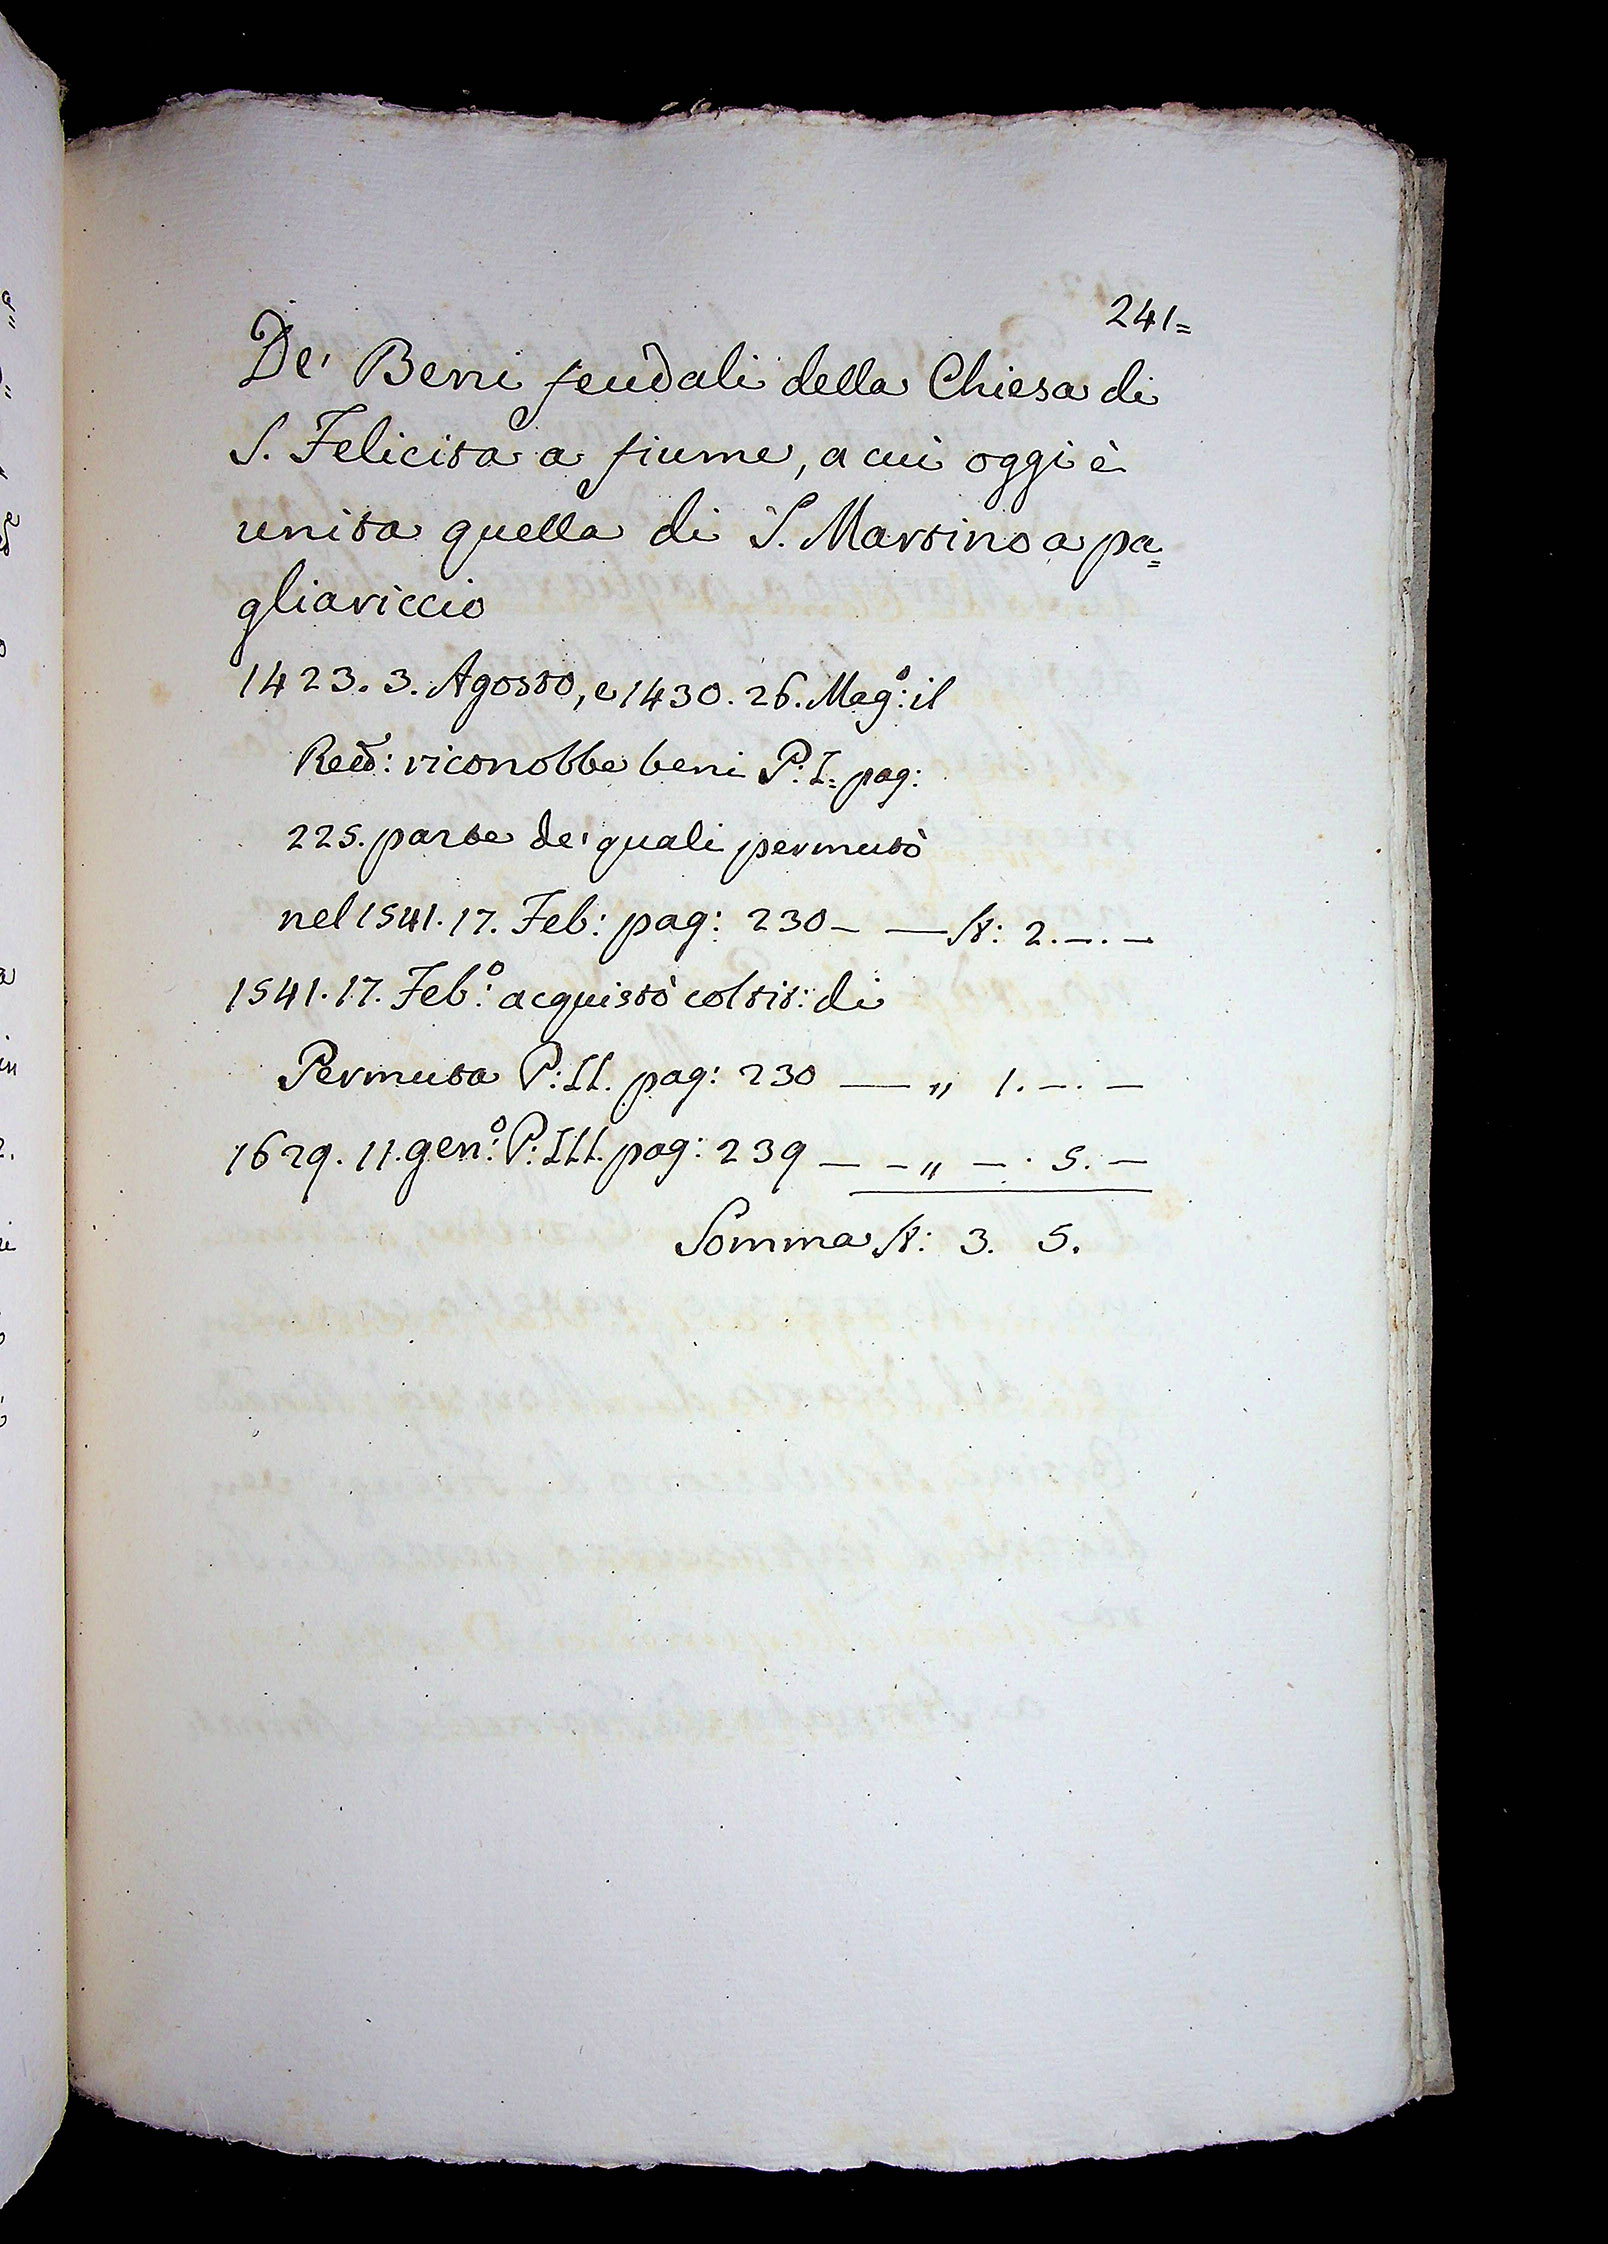 241=
De' Beni feudali della Chiesa di
S. Felicita a fiume, a cui oggi è
unita quella di S. Martino a pa=
gliariccio
1423. 3. Agosto, e 1430. 26. Mag:o il
Red: riconobbe beni P: I. pag:
225. parte de' quali permutò
nel 1541. 17. Feb: pag: 230 — — St: 2. —. —
1541. 17. Feb:o acquistò coltit: di
Permuta P: II. pag: 230 — „ 1. —. —
1629. 11. gen:o P: III. pag: 239 — — „ —. 5. —
Somma St: 3. 5.